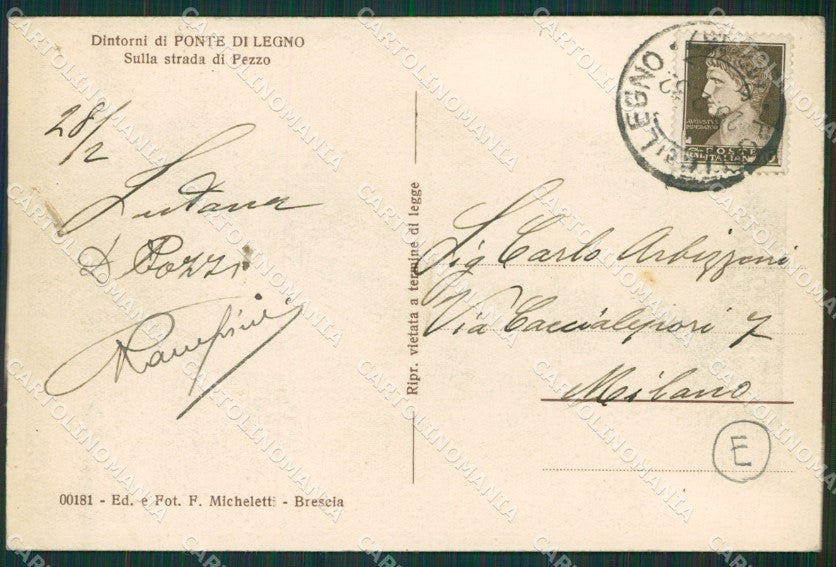 Dintorni di PONTE DI LEGNO
Sulla strada di Pezzo
28/2
D Pozzi
Rampini
00181 - Ed. e Fot. F. Micheletti - Brescia
Ripr. vietata a termine di legge
LEGNO
AVGVSTVS
IMPERATOR
POSTE
ITALIANE
Sig Carlo Arbizzoni
Via Caccialepori 7
Milano
E
CARTOLINOMANIA